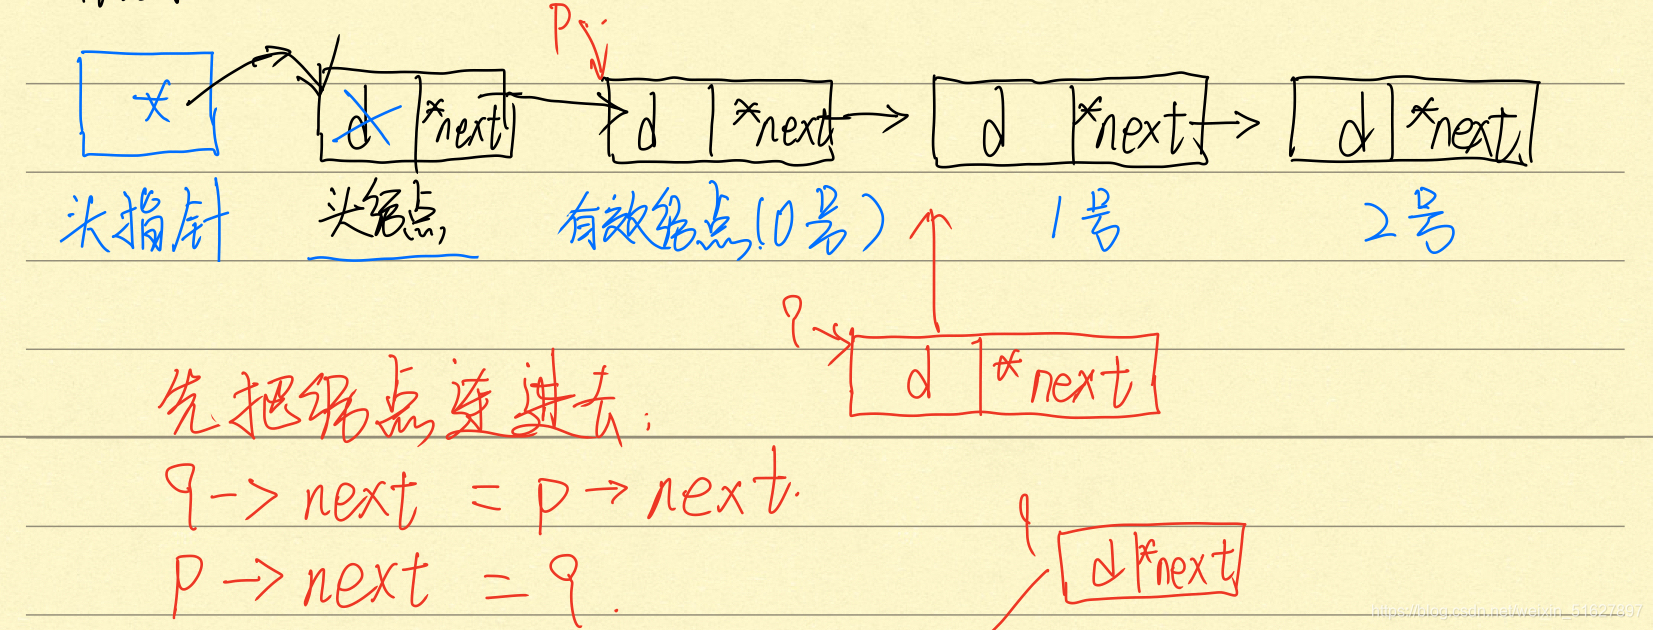 p
*
d *next d *next d *next d *next
头指针 头结点 有效结点(0号) 1号 2号
q
d *next
先把结点连进去:
q -> next = p -> next.
p -> next = q.
q
d *next
https://blog.csdn.net/weixin_51627897